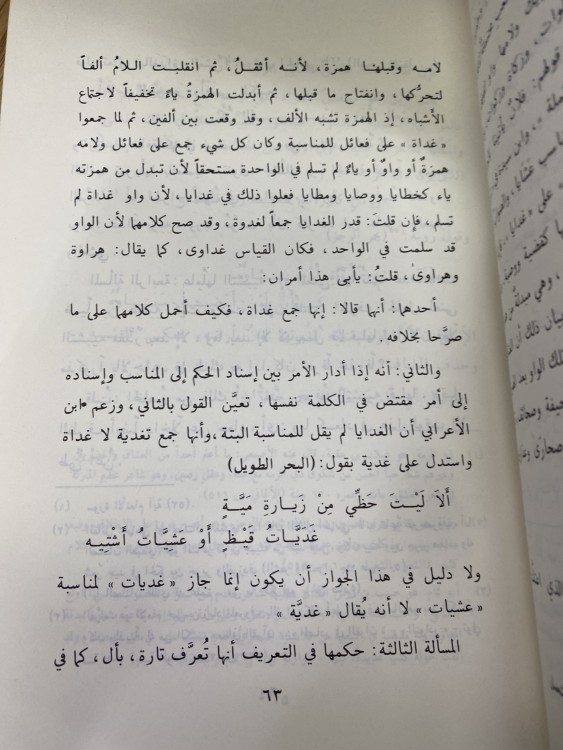 لامه وقبلها همزة، لأنه أثقلُ، ثم انقلبت اللامُ ألفاً
لتحرُّكها، وانفتاح ما قبلها، ثم أبدلت الهمزةُ ياءً تخفيفاً لاجتماع
الأشباه، إذ الهمزة تشبه الألف، وقد وقعت بين ألفين، ثم لما جمعوا
« غداة » على فعائل للمناسبة وكان كل شيء جمع على فعائل ولامه
همزةٌ أو واوٌ أو ياءٌ لم تسلم في الواحدة مستحقاً لأن تبدل من همزته
ياء كخطايا ووصايا ومطايا فعلوا ذلك في غدايا، لأن واو غداة لم
تسلم، فإن قلتَ: قدر الغدايا جمعاً لغدوة، وقد صح كلامها لأن الواو
قد سلمت في الواحد، فكان القياس غداوى، كما يقال: هراوة
وهراوى، قلتُ: يأبى هذا أمران:
أحدهما: أنهما قالا: إنها جمع غداة، فكيف أحمل كلامهما على ما
صرَّحا بخلافه.
والثاني: أنه إذا أدار الأمر بين إسناد الحكم إلى المناسب وإسناده
إلى أمر مقتض في الكلمة نفسها، تعيَّن القول بالثاني، وزعم ابن
الأعرابي أن الغدايا لم يقل للمناسبة البتة، وأنها جمع تغدية لا غداة
واستدل على غدية بقول: (البحر الطويل)
أَلاَ لَيْتَ حَظِّي مِنْ زَيـارةِ مَيَّـةٍ
غَدَيَّاتُ قَيْظٍ أَو عشِيَّاتُ أَشْتِيَه
ولا دليل في هذا الجواز أن يكون إنما جاز « غديات » لمناسبة
« عشيات » لا أنه يُقال « غديَّة »
المسألة الثالثة: حكمها في التعريف أنها تُعرَّف تارة، بأل، كما في
٦٣